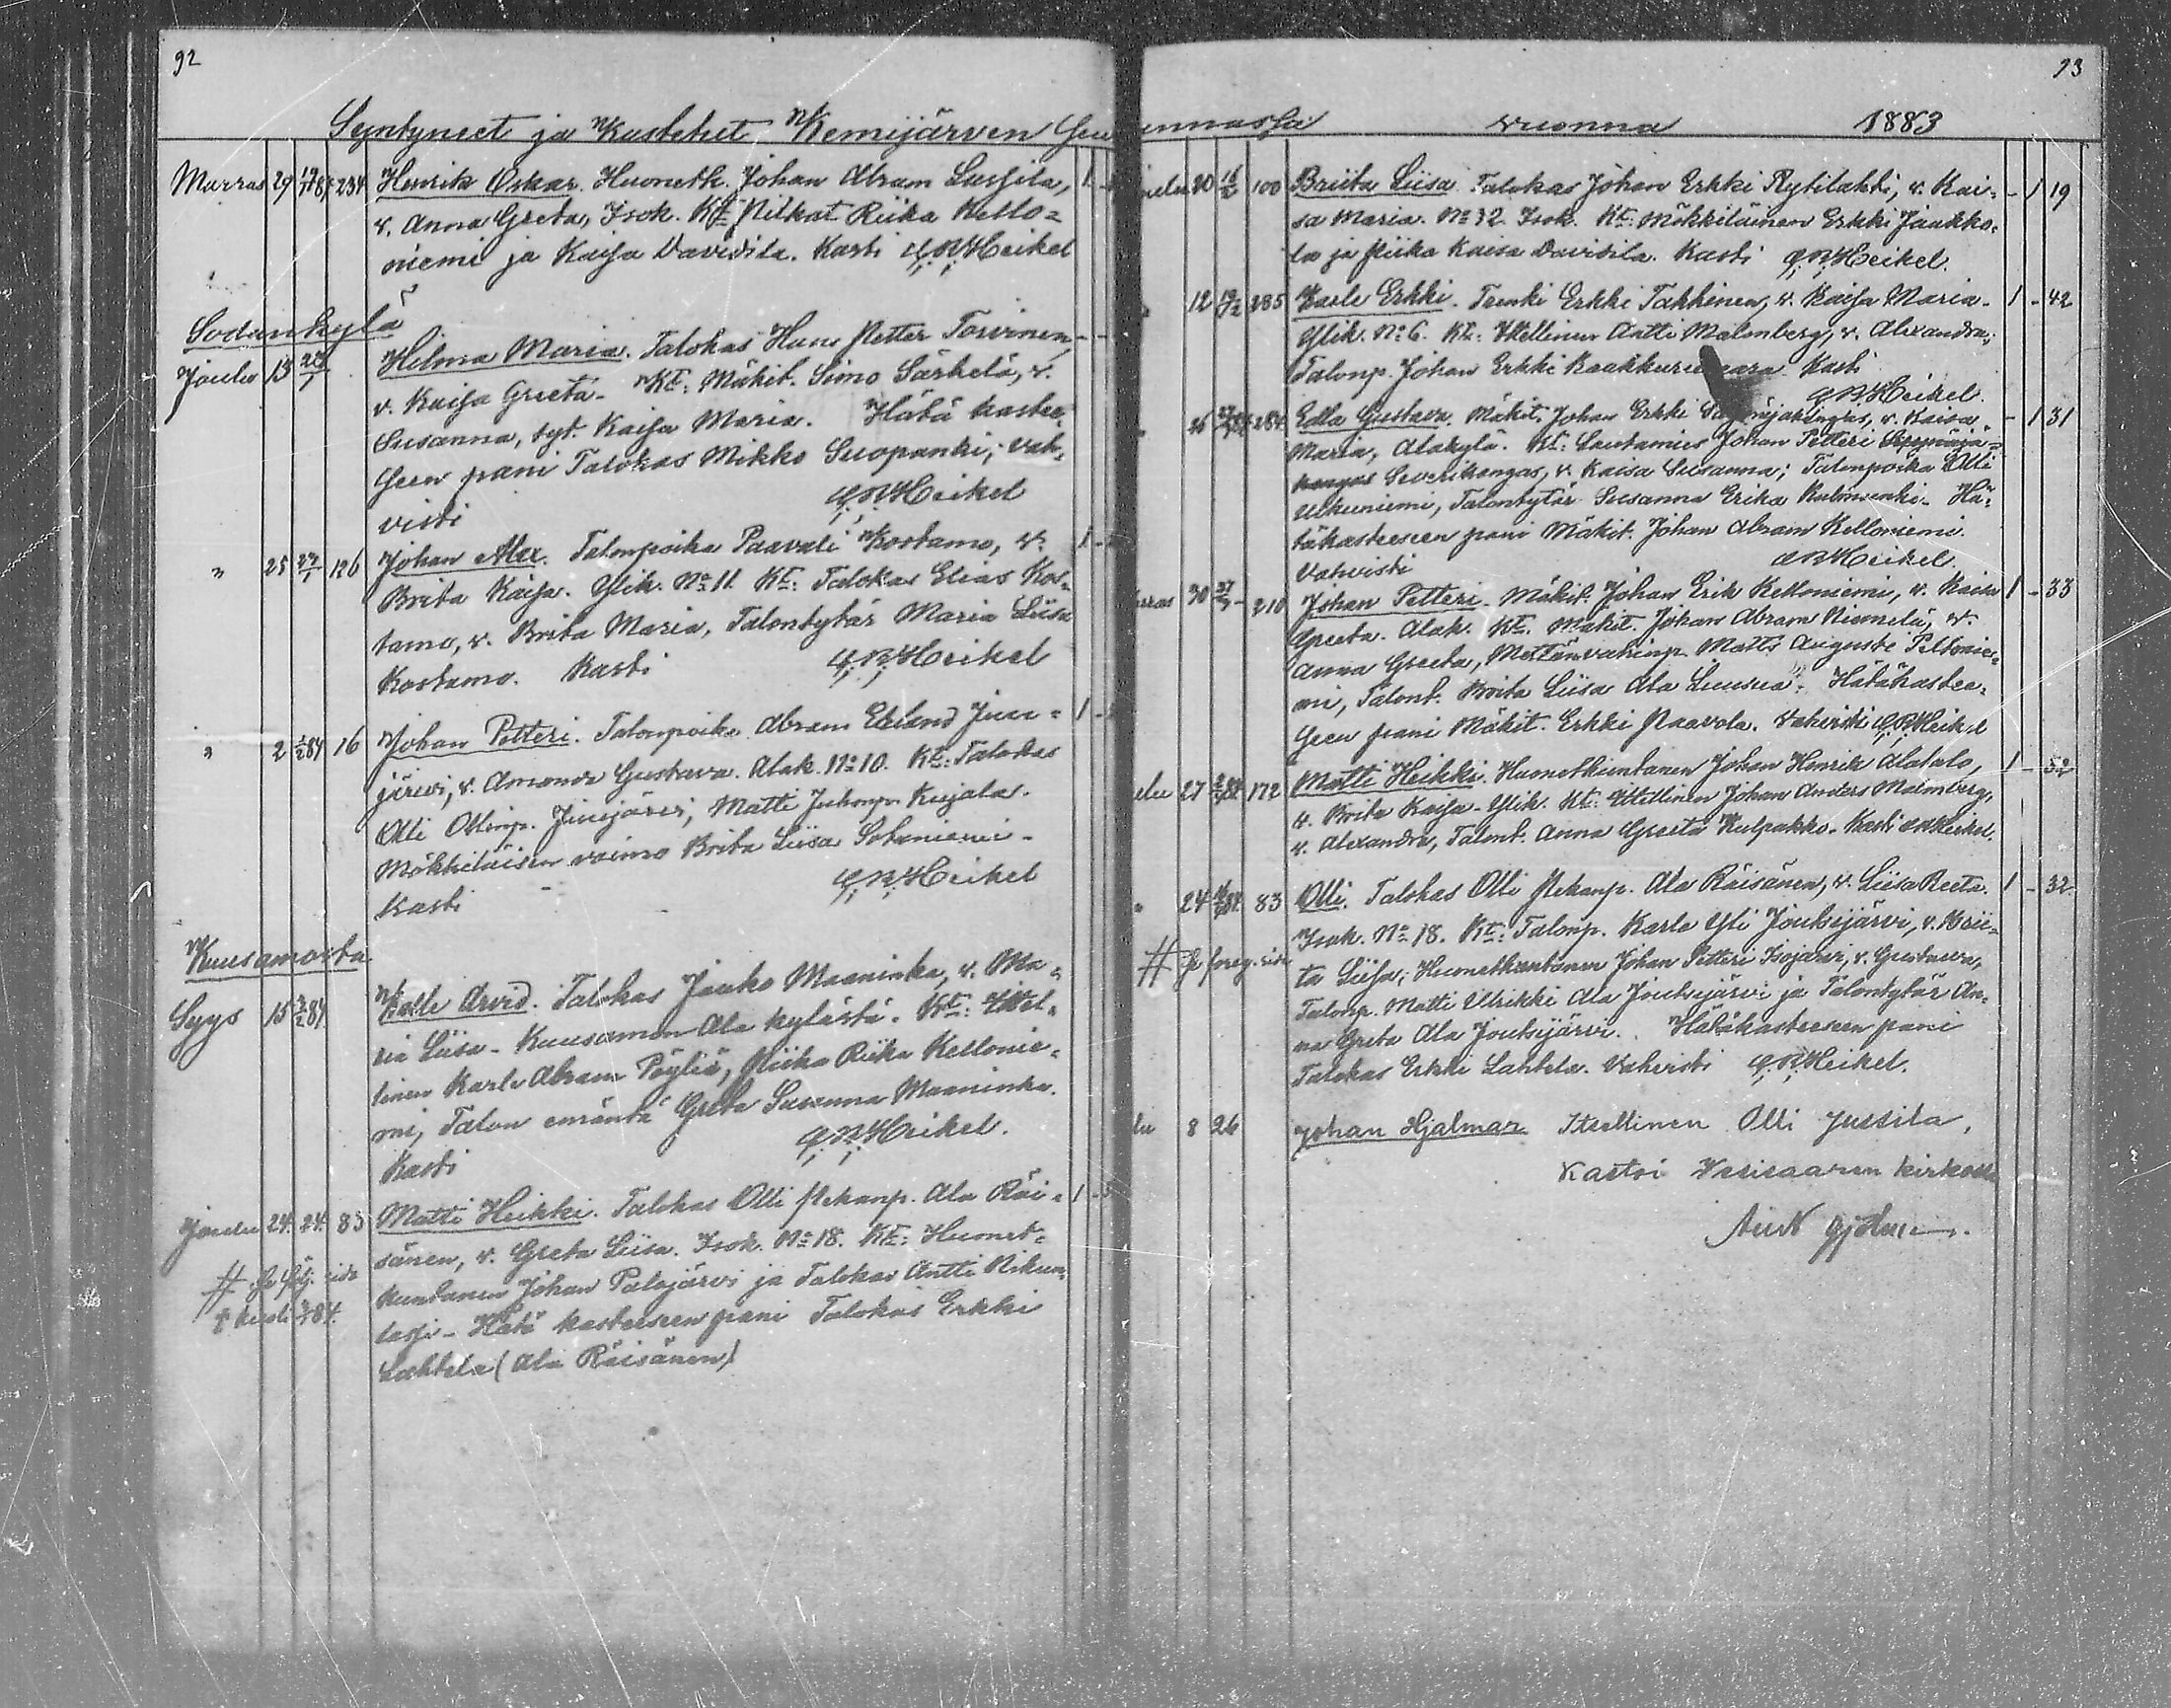 92
Syntyneet ja Kastetut Kemijärven Seu
Marras 29 234 Henrik Oskar. Huonetk. Johan Abram Lassila, 1
v. Anna Greta, Isok. Kt: Piikat Riika Kello=
niemi ja Kaisa Davidila. Kasti C.R. Heikel
Sodankylä
Joulu 15 27/1 Helma Maria. Talokas Hans Petter Torvinen,
v. Kaisa Greeta. Kt: Mäkit. Simo Särkelä, v.
Susanna, tyt. Kaisa Maria. Hätä kastee=
seen pani Talokas Mikko Suopanki; vah=
visti C.R. Heikel
" 25 27/1 126 Johan Alex. Talonpoika Paavali Kostamo, v. 1
Brita Kaisa. Ylik. No 11. Kt: Talokas Elias Kos=
tamo, v. Brita Maria, Talontytär Maria Liisa
Kostamo. Kasti C.R. Heikel
" 2 1/2 84 16 Johan Petteri. Talonpoika Abram Edland Juu= 1
järvi, v. Amanda Gustava. Alak. No 10. Kt: Talokas
Olli Ollinp. Juujärvi; Matti Juhonp. Kujala.
Mökkiläisen vaimo Brita Liisa Sotaniemi.
Kasti C.R. Heikel
Kuusamosta
Syys 15 3/2 84 Kalle Arvid. Talokas Jaako Maaninka, v. Ma=
ria Liisa. Kuusamon Ala kylästä. Kt: Itsel=
linen Karle Abram Pöyliö, Piika Riika Kellonie=
mi, Talon emäntä Greta Susanna Maaninka.
Kasti C.R. Heikel.
Joulu 24 24 83 Matti Heikki. Talokas Olli Pekanp. Ala Räi= 1
sänen, v. Greta Liisa. Isok. No 18. Kt: Huonet=
# se följ. sida kuntanen Johan Palojärvi ja Talokas Antti Nikun=
lassi. Hätä kasteeseen pani Talokas Erkki
Lahtela (Ala Räisänen)
93
unnassa vuonna 1883
20 100 Briita Liisa. Talokas Johan Erkki Rytilahti, v. Kai= - 1 19
sa Maria. No 32 Isok. Kt: Mökkiläinen Erkki Jaakko=
la ja Piika Kaisa Davidila. Kasti C.R. Heikel.
12 285 Karle Erkki. Trenki Erkki Takkinen, v. Kaisa Maria. 1 - 42
Ylik. No 6. Kt: Itsellinen Antti Malmberg, v. Alexandra;
Talonp. Johan Erkki Kaakkurivaara. Kasti
C.R. Heikel.
26 284 Edla Gustava. Mäkit. Johan Erkki v. Kaisa - 1 31
Maria, Alakylä. Kt: Lautamies Johan Petteri
Severikangas, v. Kaisa Susanna; Talonpoika Olli
Ulkuniemi, Talontytär Susanna Erika Kulonsenki. Hä=
täkasteeseen pani Mäkit. Johan Abram Kelloniemi.
Vahvisti C.R. Heikel.
rras 30 210 Johan Petteri. Mäkit. Johan Erik Kelloniemi, v. Kaisa 1 - 33
Greeta. Alak. Kt: Mäkit. Johan Abram Niemelä, v.
Anna Greeta, Mettänvahinp. Matts Auguste Peltonie=
mi, Talont. Brita Liisa Ala Luusua. Hätäkastee=
seen pani Mäkit. Erkki Paavola. Vahvisti C.R. Heikel
ulu 27 172 Matti Heikki. Huonetkuntanen Johan Henrik Alatalo, 1 - 52
v. Brita Kaisa. Ylik. Kt: Itsellinen Johan Anders Malmberg,
v. Alexandra, Talont. Anna Greeta Kulpakko. Kasti C.R. Heikel.
" 24 83 Olli. Talokas Olli Pekanp. Ala Räisänen, v. Liisa Reeta. 1 - 32
Isok. No 18. Kt: Talonp. Karle Yli Joutsijärvi, v. Brii=
# se föreg. sida ta Liisa; Huonetkuntanen Johan Petteri Isojärvi, v. Gustaava,
Talonp. Matti Ulrikki Ala Joutsijärvi ja Talontytär An=
na Greta Ala Joutsijärvi. Hätäkasteeseen pani
Talokas Erkki Lahtela. Vahvisti C.R. Heikel.
lu 8 26 Johan Hjalmar Itsellinen Olli Jussila,
Kastoi Vesisaaren kirkossa